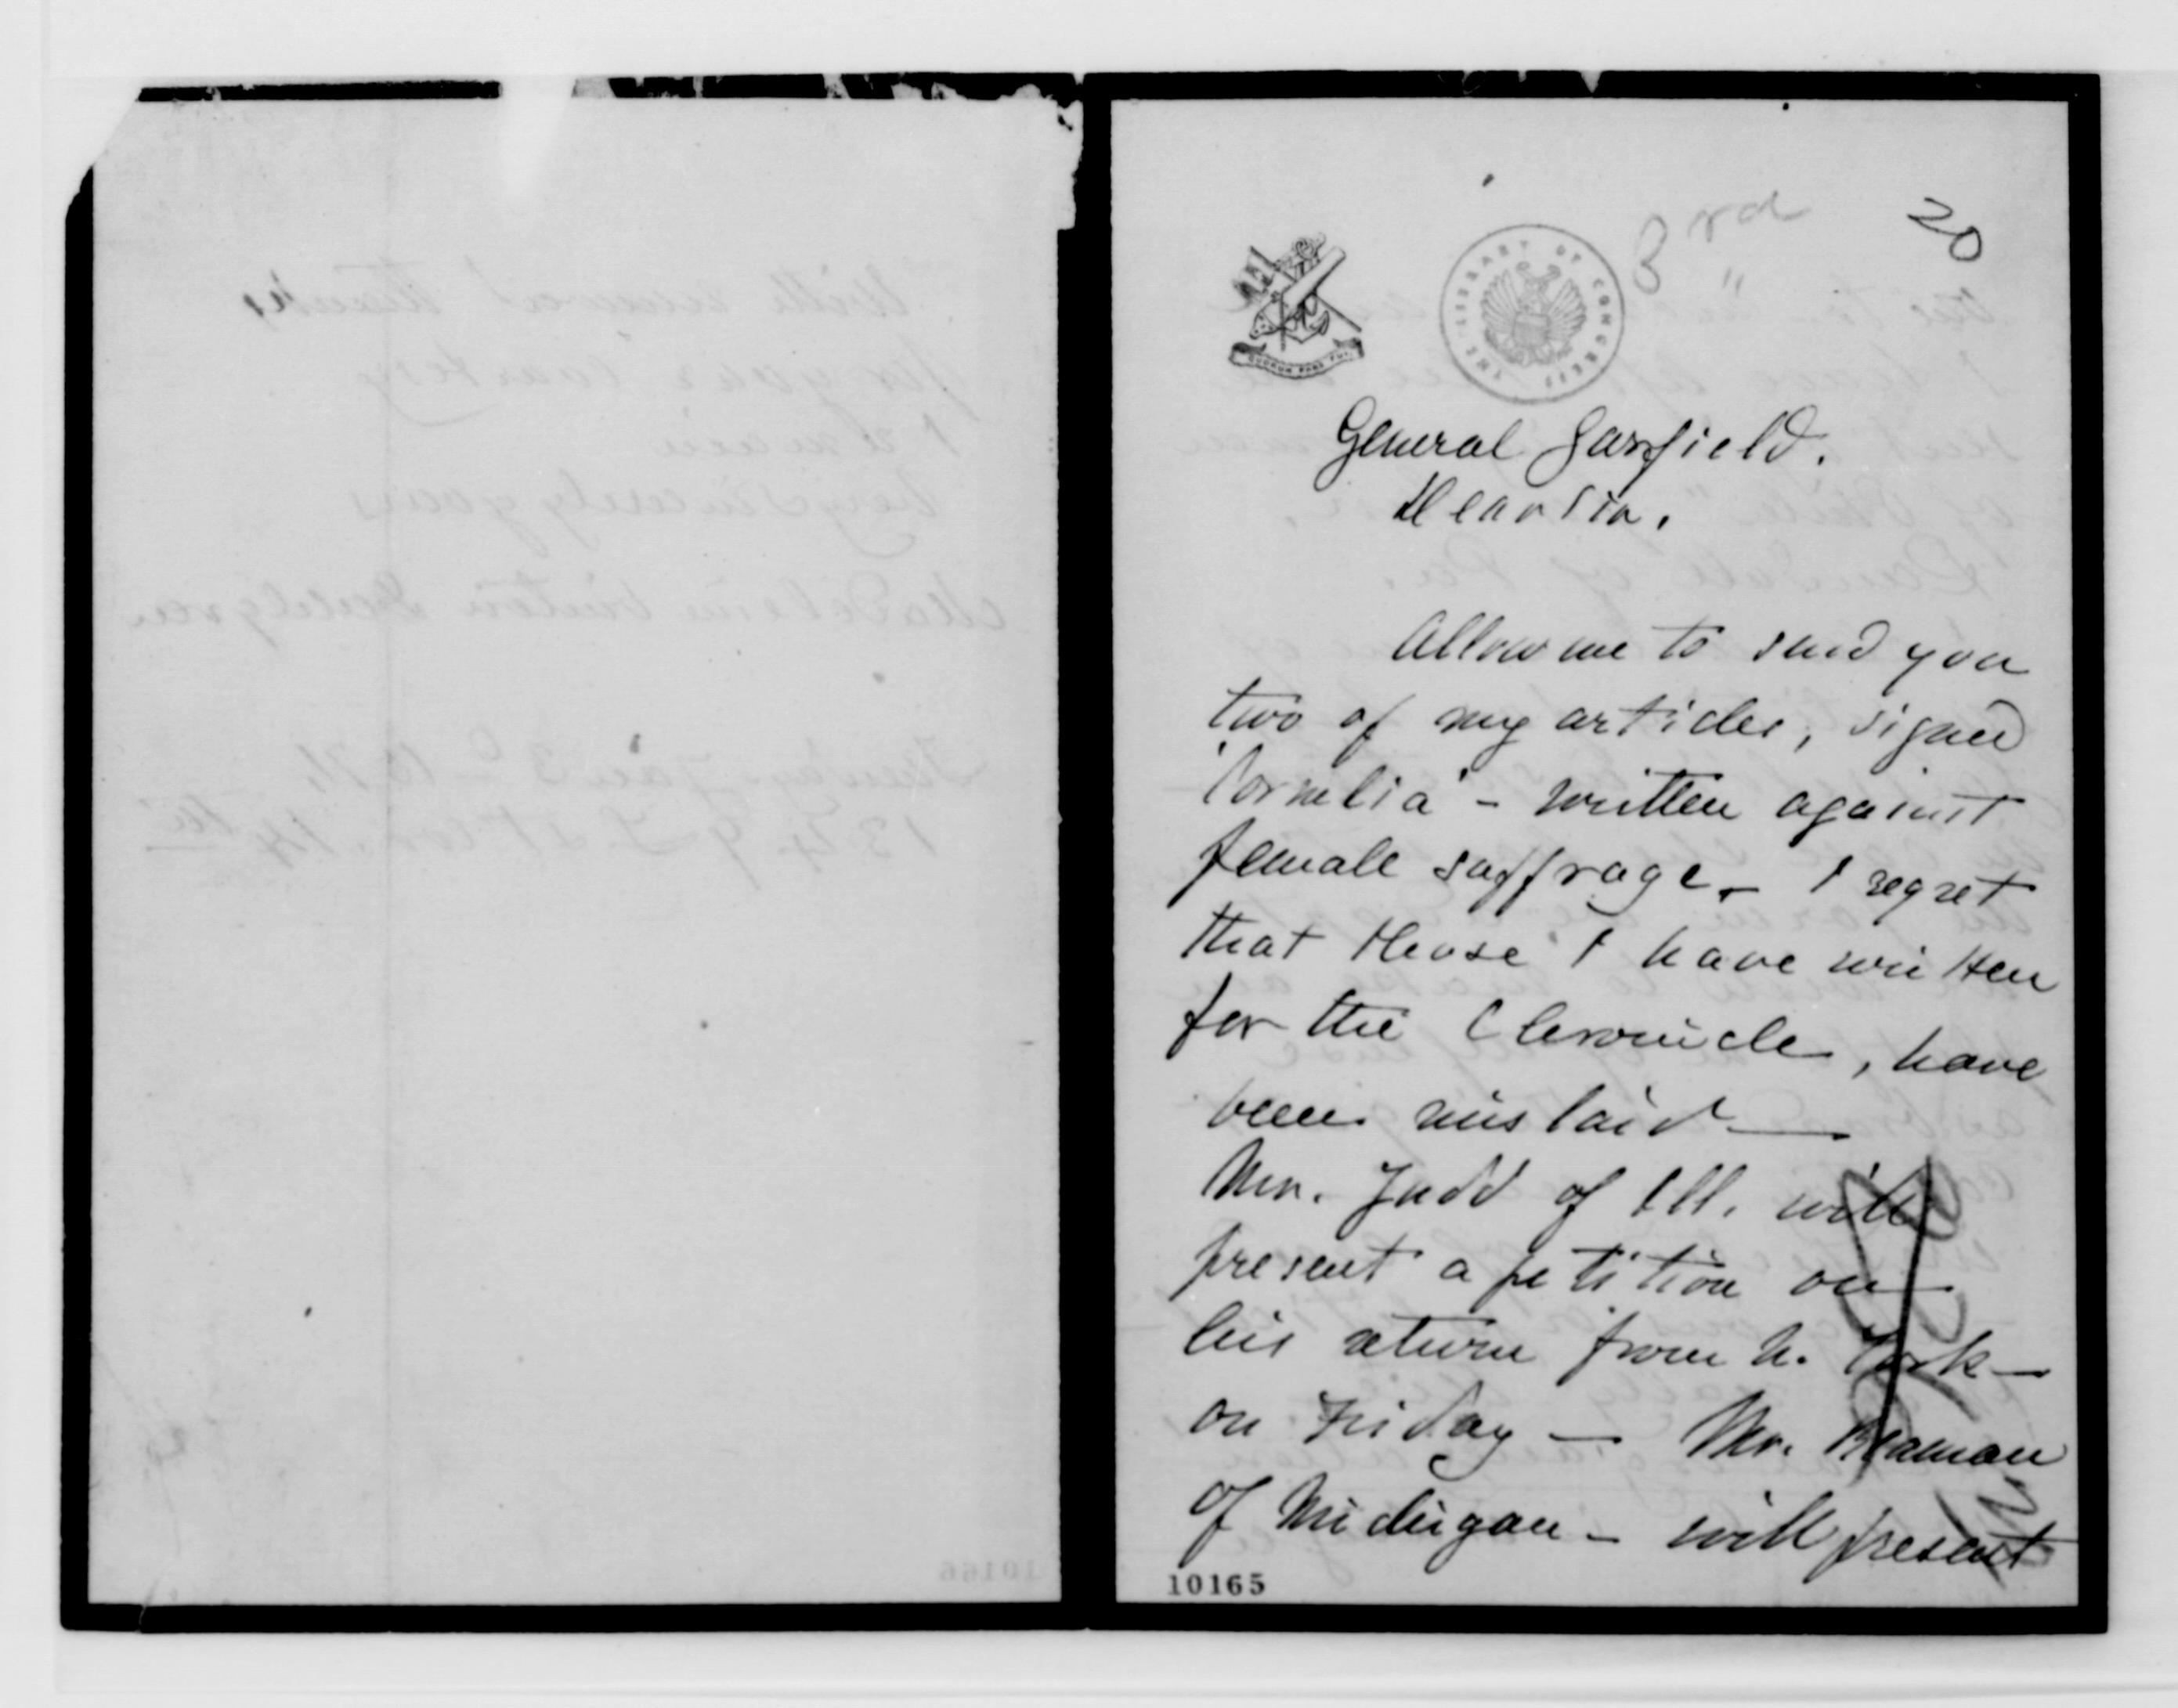 3rd
"
20
QUORUM PARS FUI.
THE LIBRARY OF CONGRESS
General Garfield.
Dear Sir.
Allow me to send you
two of my articles, signed
'Cornelia' - written against
female suffrage - I regret
that those I have written
for the Chronicle, have
been mislaid —
Mr. Judd of Ill. will
present a petition on
his return from N. York —
on Friday — Mr.
of Michigan - will present
10165
With renewed thanks,
for your courtesy
I remain
very sincerely yours
Madeleine Vinton Dahlgren
10166